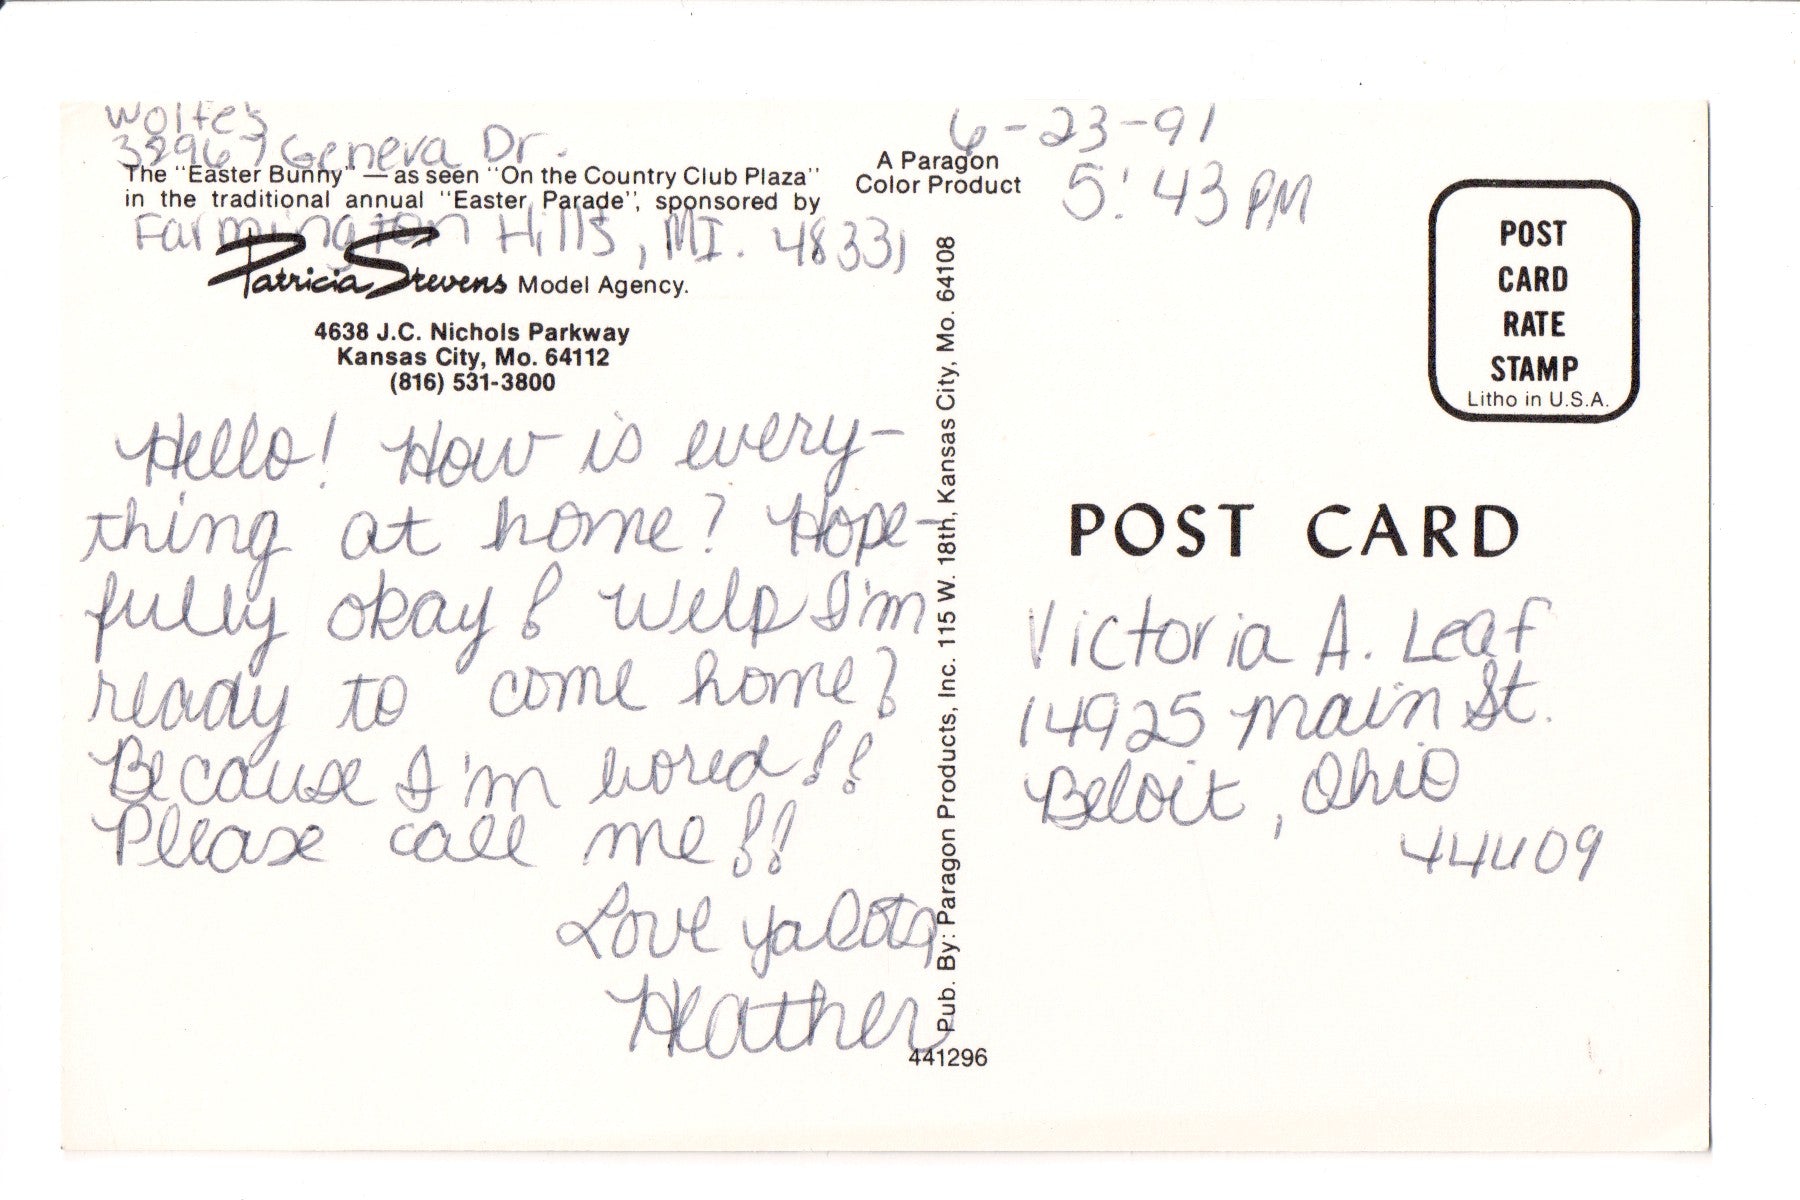 Wolfe's
32967 Geneva Dr.
The "Easter Bunny" — as seen "On the Country Club Plaza"
in the traditional annual "Easter Parade", sponsored by
Farmington Hills, MI. 48331
Patricia Stevens Model Agency.
4638 J.C. Nichols Parkway
Kansas City, Mo. 64112
(816) 531-3800
Hello! How is every-
thing at home? Hope-
fully okay! Welp I'm
ready to come home?
Because I'm bored!!
Please call me!!
Love ya lots
Heather
A Paragon
Color Product
Pub. By: Paragon Products, Inc. 115 W. 18th, Kansas City, Mo. 64108
441296
6-23-91
5:43 PM
POST
CARD
RATE
STAMP
Litho in U.S.A.
POST CARD
Victoria A. Leaf
14925 Main St.
Beloit, Ohio
44609